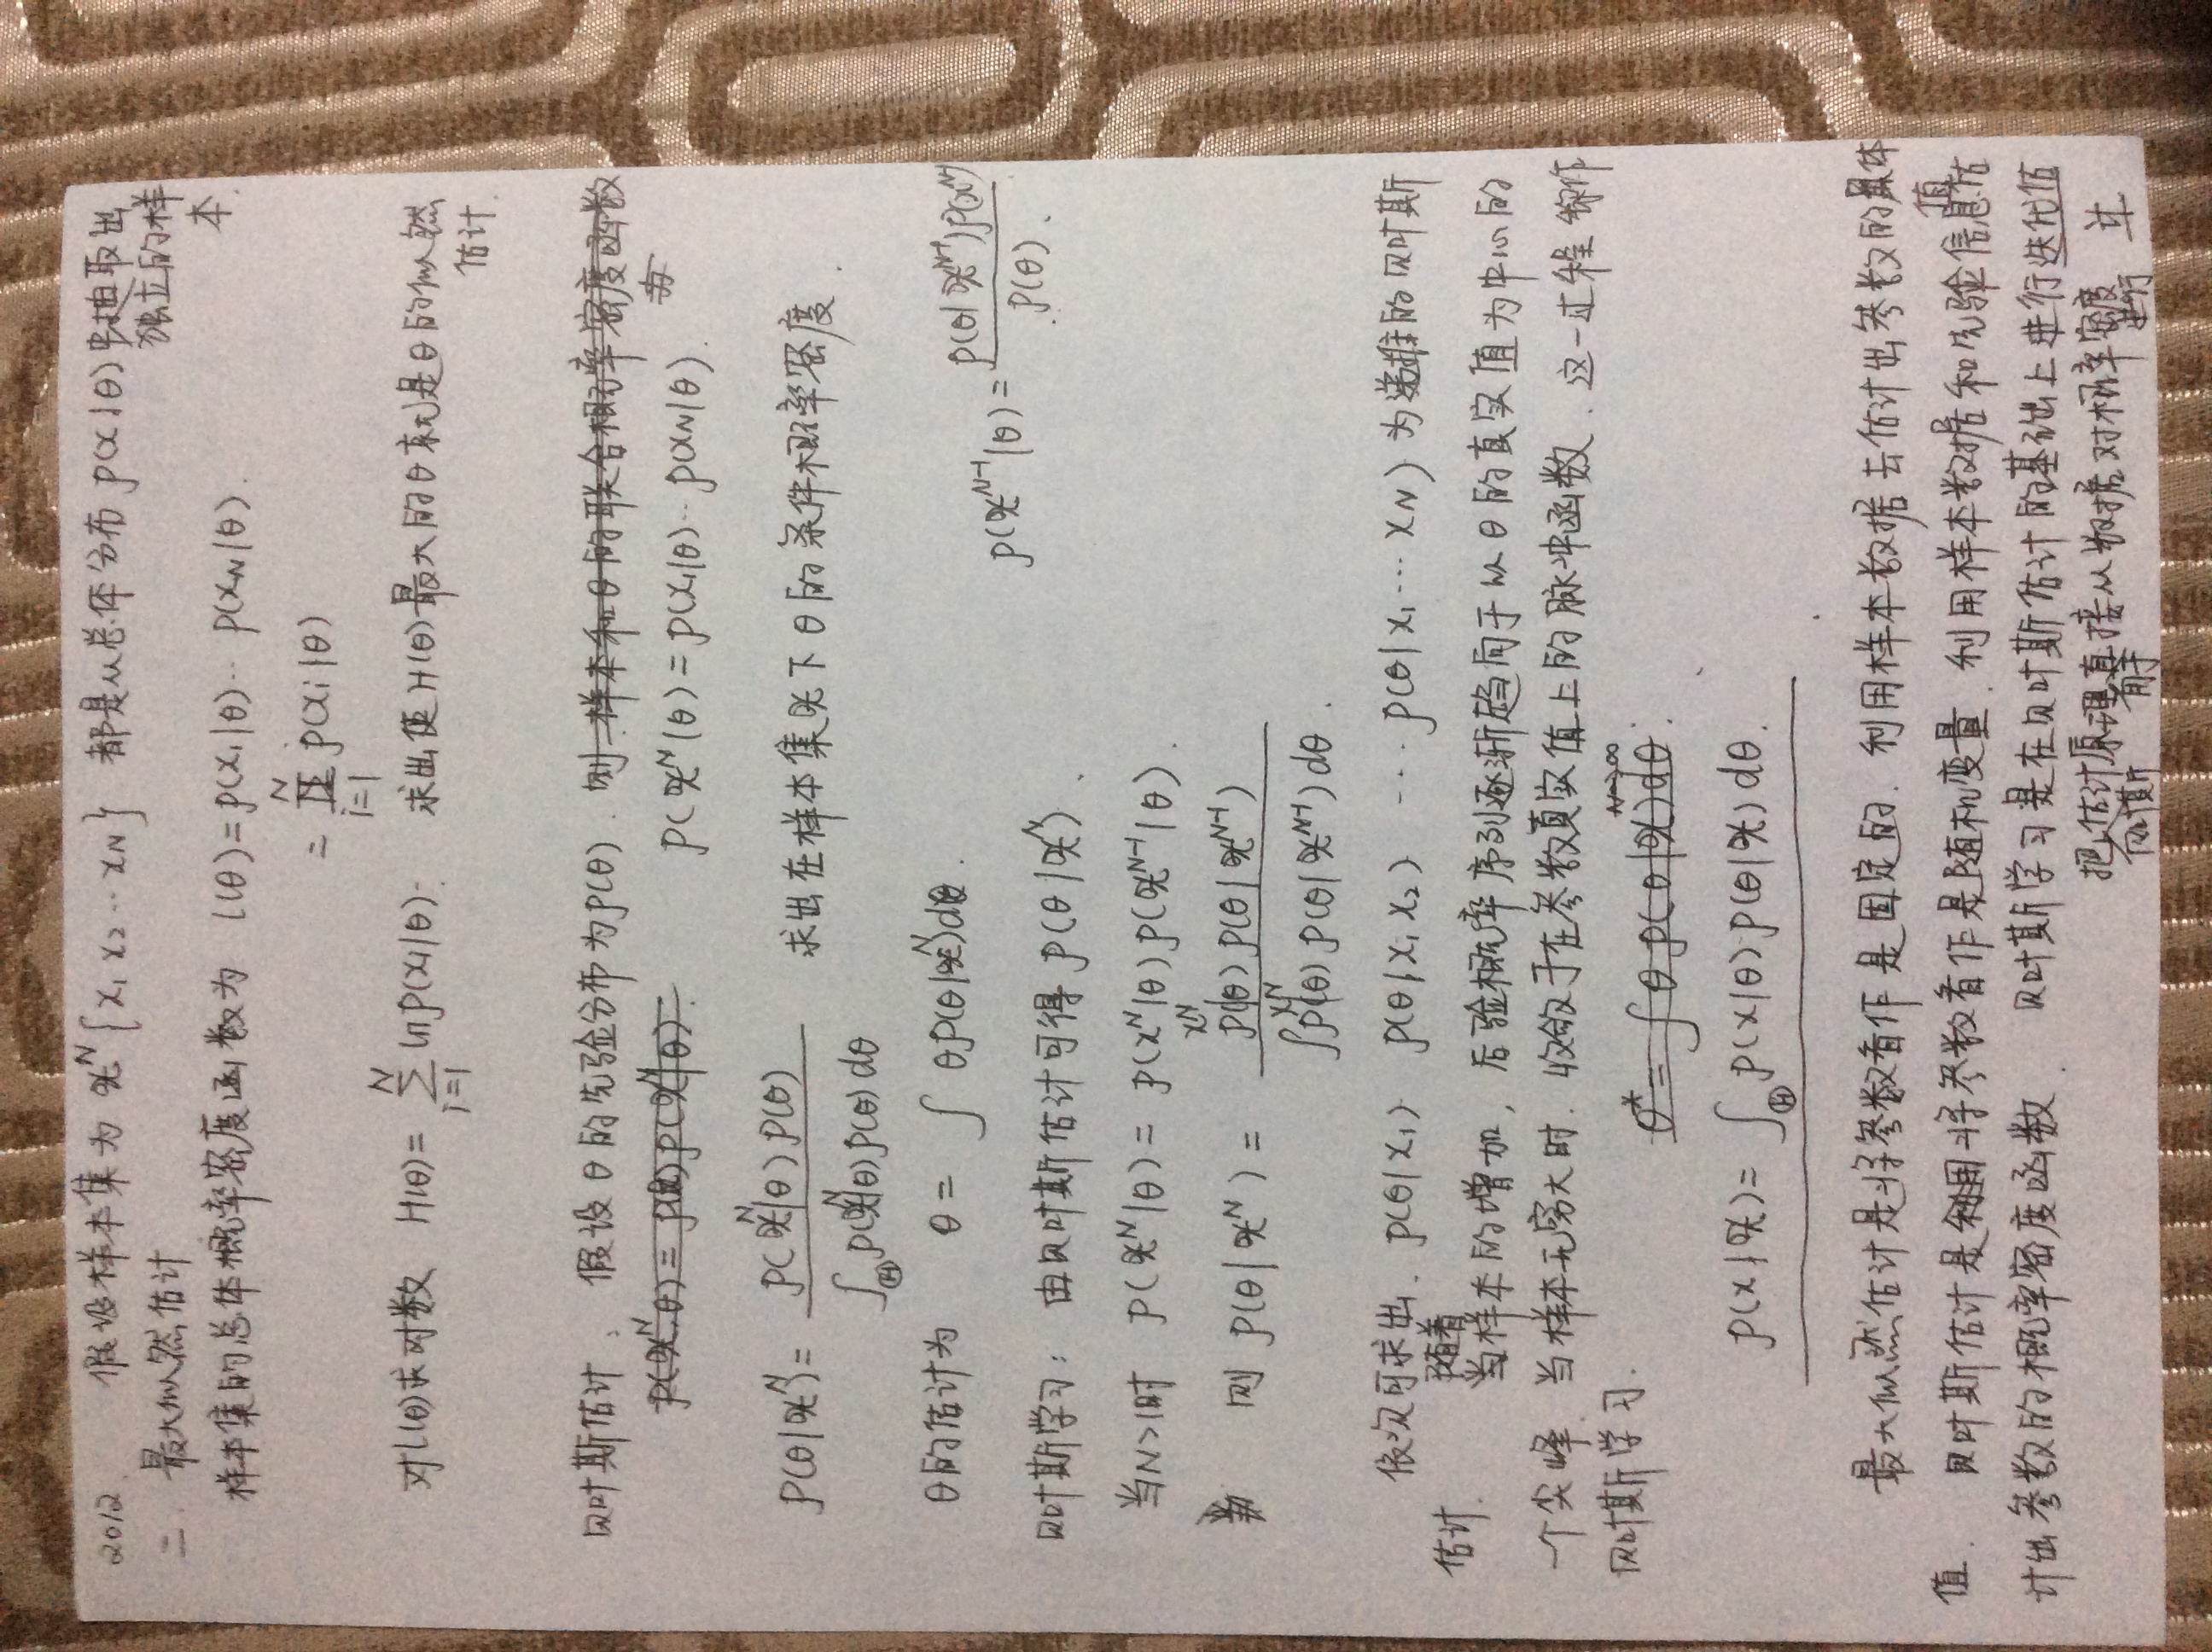 2012. 假设样本集为 𝒳^N {x₁ x₂ … x_N} 都是从总体分布 p(x|θ) 中抽取出
独立的样
本.
二. 最大似然估计
样本集的总体概率密度函数为 l(θ)=p(x₁|θ)… p(x_N|θ).
= ∏_{i=1}^{N} p(x_i|θ)
对l(θ)求对数 H(θ)= ∑_{i=1}^{N} ln p(x_i|θ). 求出使H(θ)最大的θ就是θ的似然
估计.
贝叶斯估计: 假设θ的先验分布为p(θ). 则 样本和θ的联合概率密度函数
p(𝒳^N,θ)= p(𝒳)p(𝒳^N|θ). p(𝒳^N|θ)=p(x₁|θ)… p(x_N|θ).
p(θ|𝒳^N)= p(𝒳^N|θ)p(θ) / ∫_Θ p(𝒳^N|θ)p(θ)dθ 求出在样本集𝒳下θ的条件概率密度.
θ的估计为 θ= ∫ θp(θ|𝒳^N)dθ.
贝叶斯学习: 由贝叶斯估计可得 p(θ|𝒳^N).
p(𝒳^{N-1}|θ)= p(θ|𝒳^{N-1})p(𝒳^N) / p(θ).
当N>1时 p(𝒳^N|θ)= p(x^N|θ)p(𝒳^{N-1}|θ).
则 p(θ|𝒳^N)= p(x^N|θ)p(θ|𝒳^{N-1}) / ∫p(x^N|θ)p(θ|𝒳^{N-1})dθ.
依次可求出. p(θ|x₁) p(θ|x₁ x₂) … p(θ|x₁ … x_N) 为递推的贝叶斯
估计. 随着
当样本的增加, 后验概率序列逐渐趋向于以θ的真实值为中心的
一个尖峰. 当样本无穷大时. 收敛于在参数真实值上的脉冲函数. 这一过程称作
贝叶斯学习.
θ* = ∫ θ p(θ|𝒳)dθ. N→∞
p(x|𝒳)= ∫_Θ p(x|θ)p(θ|𝒳)dθ.
最大似然估计是将参数看作是固定的. 利用样本数据去估计出参数的具体
值
值. 贝叶斯估计是利用将参数看作是随机变量. 利用样本数据和先验信息估
计出参数的概率密度函数. 贝叶斯学习是在贝叶斯估计的基础上进行迭代值
把贝叶斯估计原理用于直接从数据对概率密度进行
计